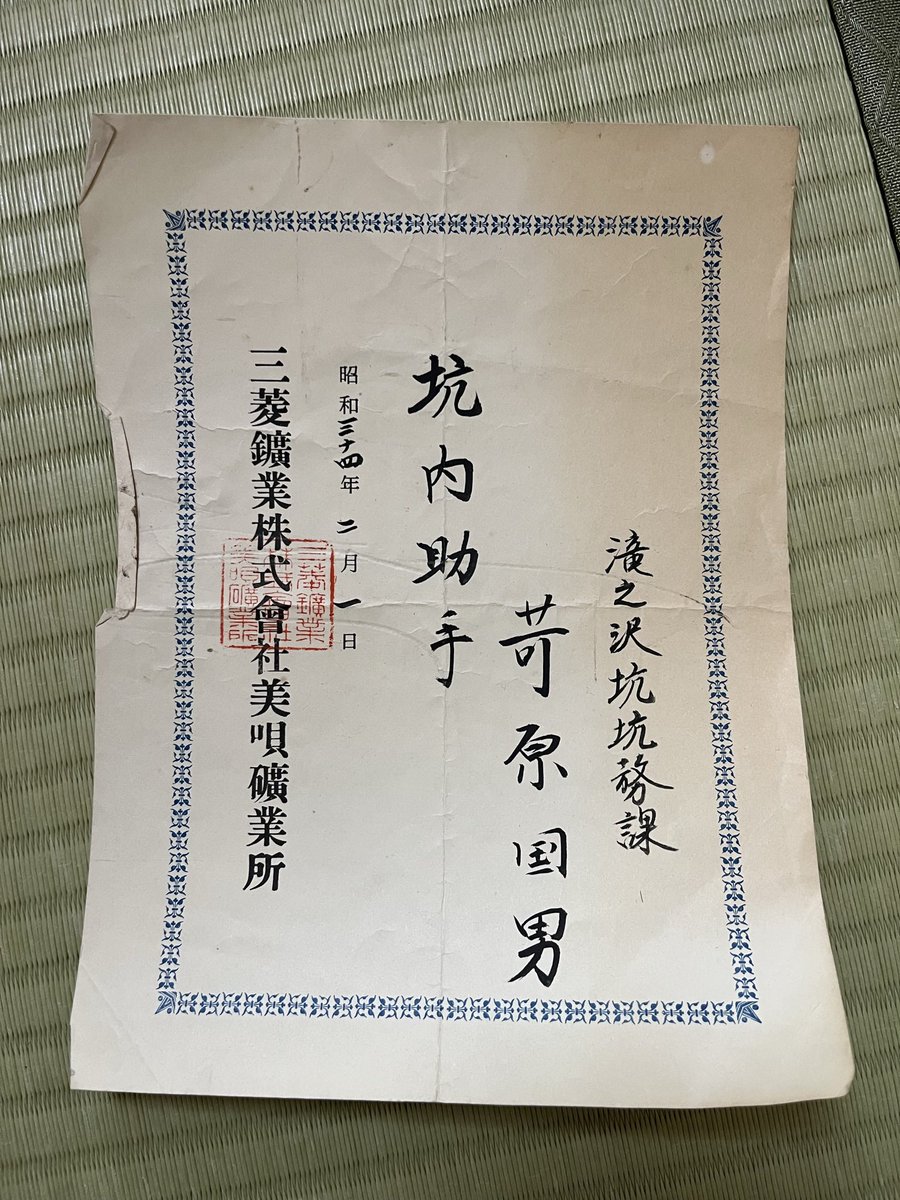 滝之沢坑坑務課
苛原国男
坑内助手
昭和三十四年二月一日
三菱鑛業株式會社美唄礦業所
三菱鑛業
株式會社
美唄礦業所